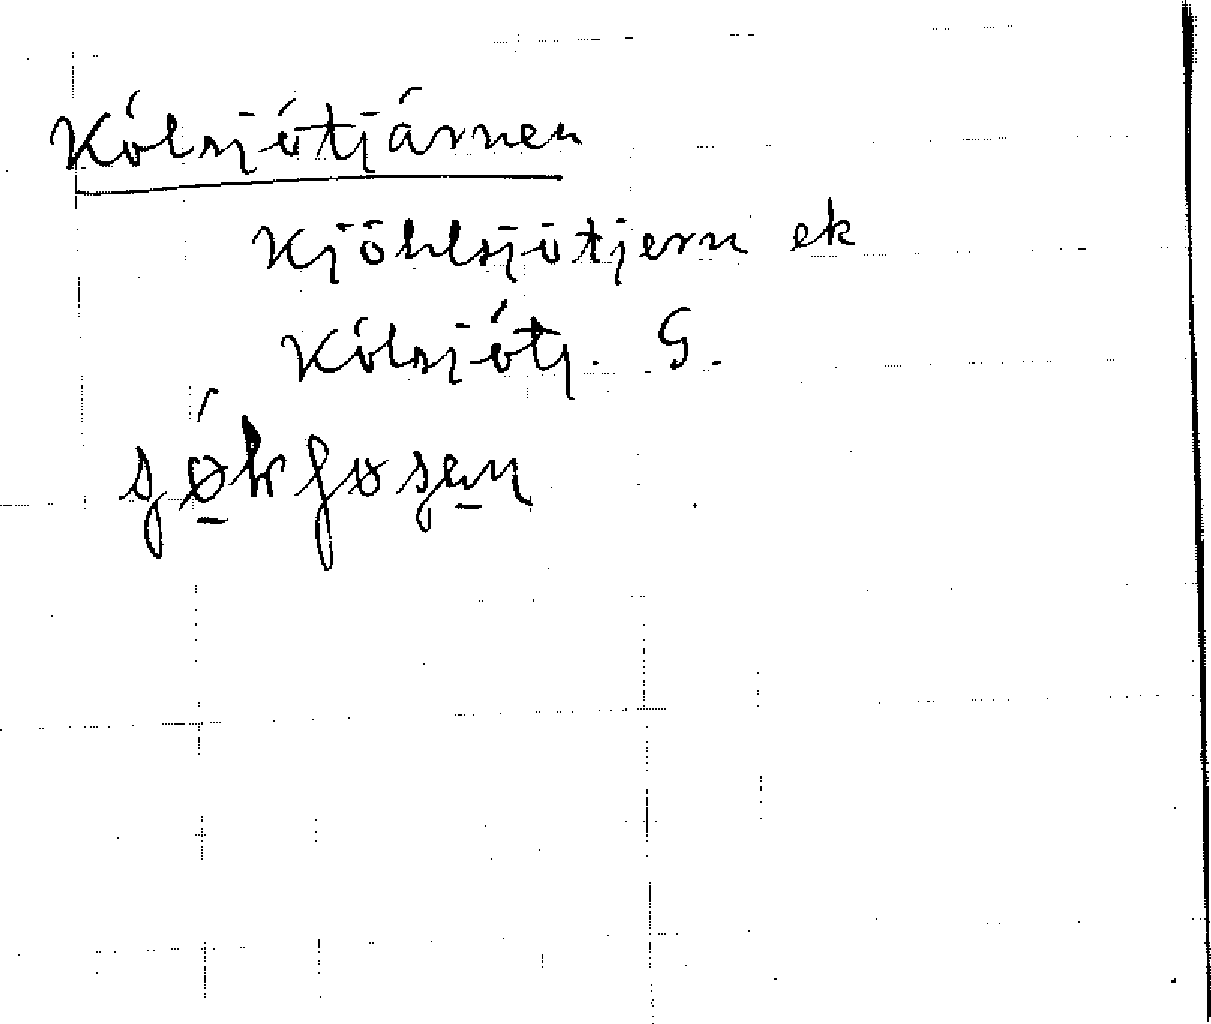 Kölsjötjärnen
Kjöhlsjötjern ek
Kölsjötj. G.